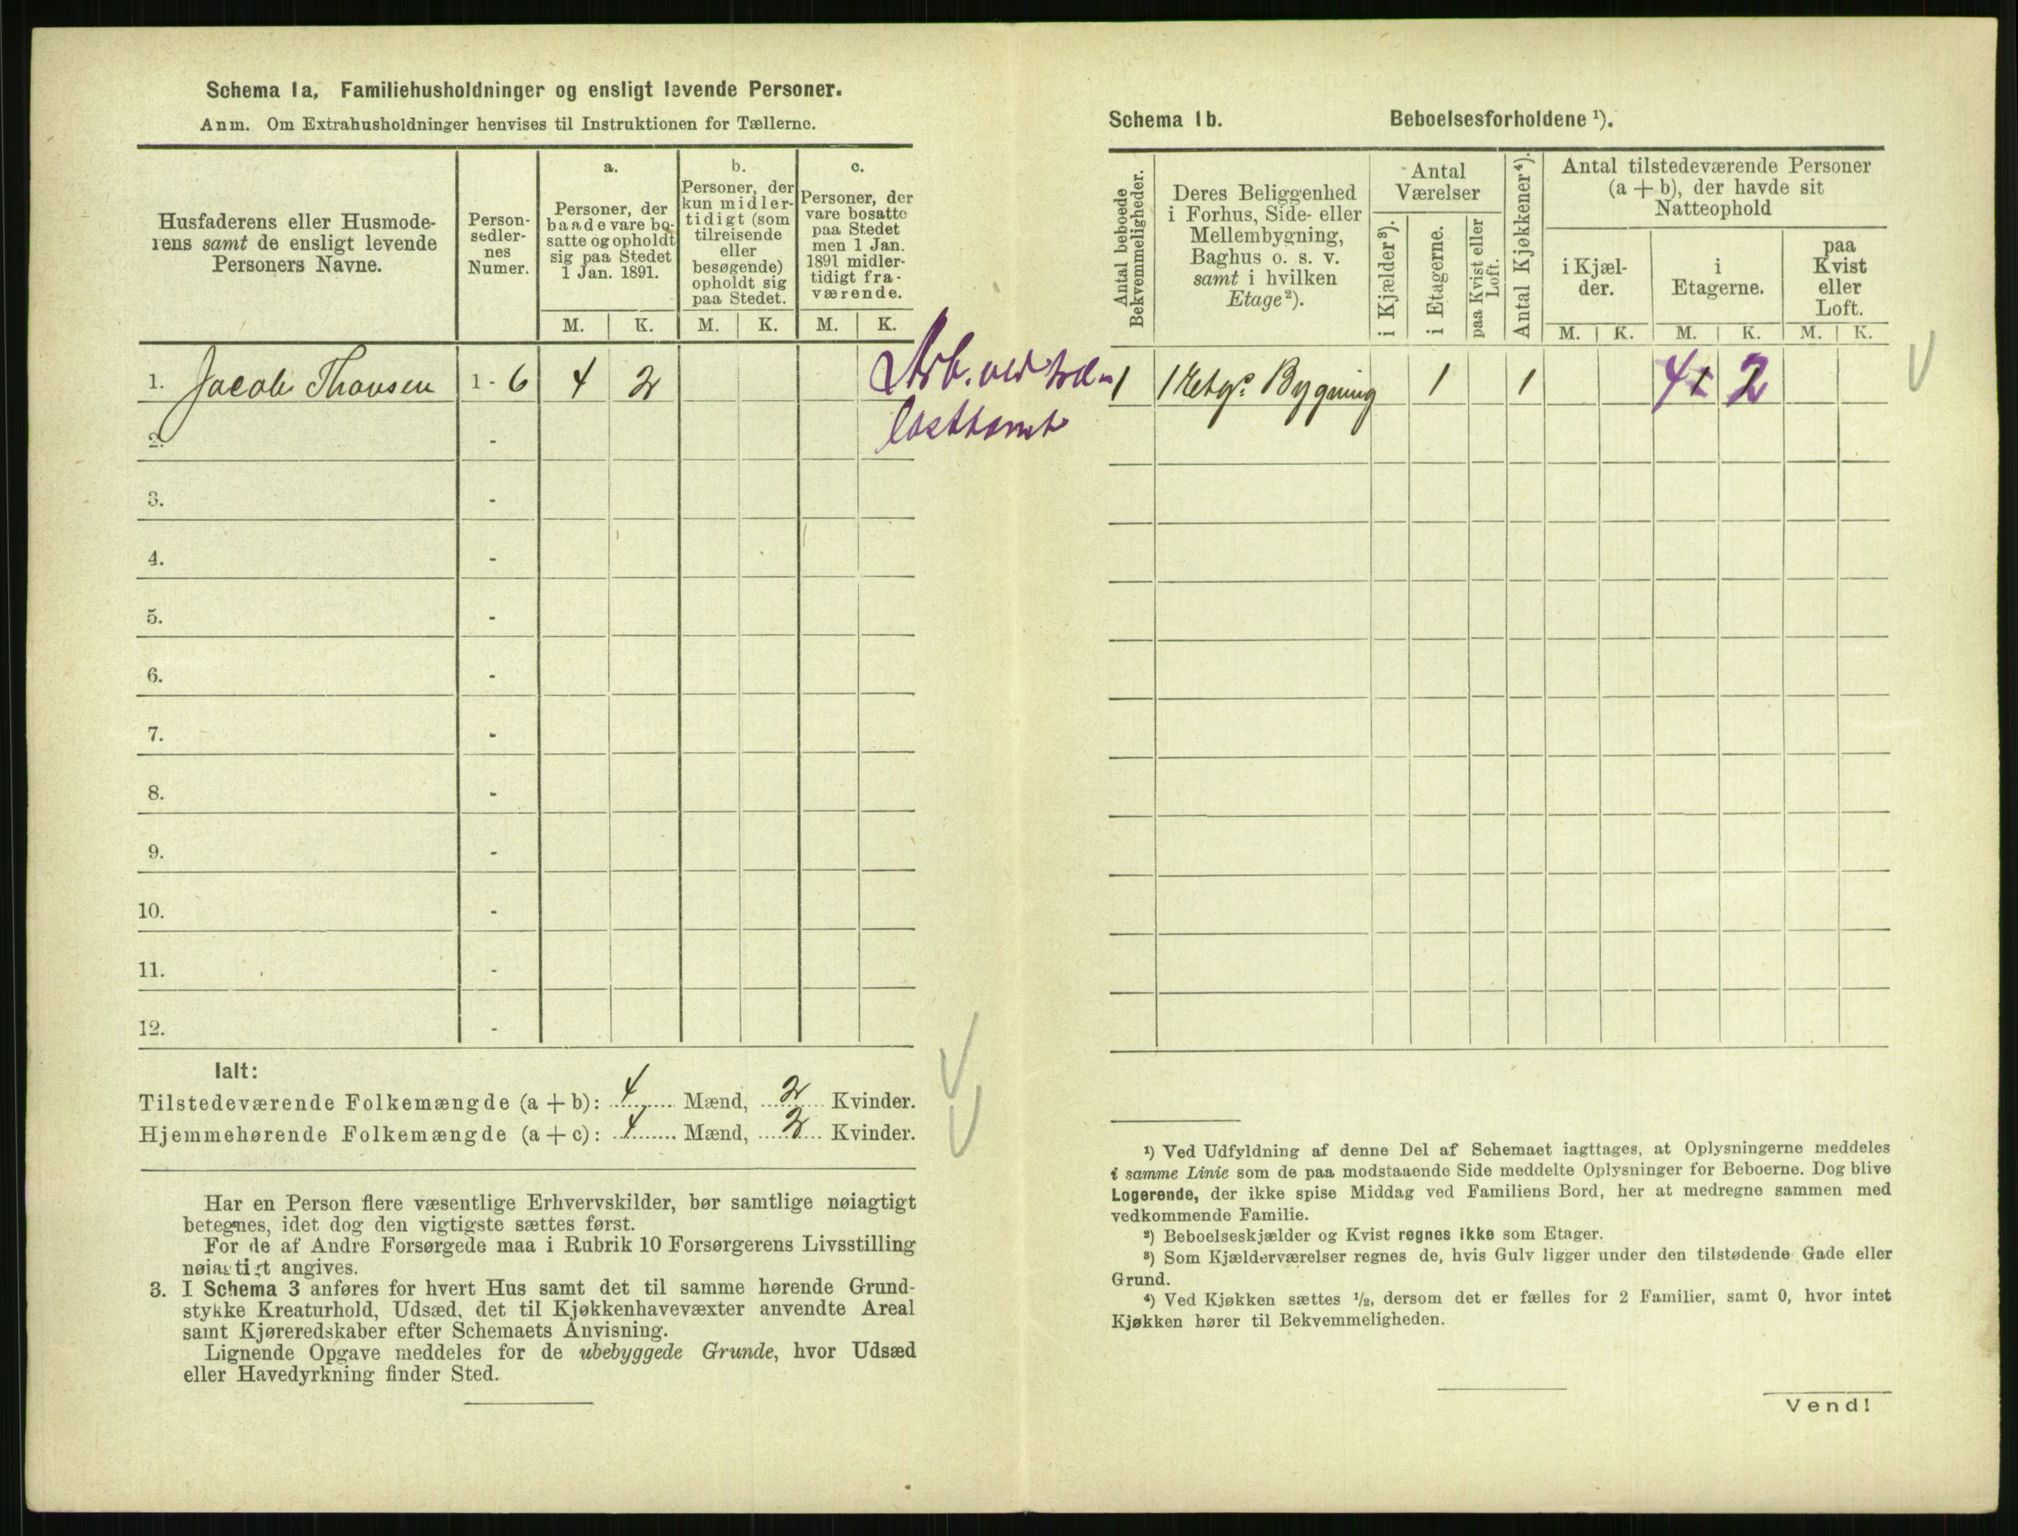 Schema 1a. Familiehusholdninger og ensligt levende Personer.
Anm. Om Extrahusholdninger henvises til Instruktionen for Tællerne.
Husfaderens eller Husmode-
rens samt de ensligt levende
Personers Navne.
Person-
sedler-
nes
Numer.
a.
Personer, der
baade vare bo-
satte og opholdt
sig paa Stedet
1 Jan. 1891.
M. K.
b.
Personer, der
kun midler-
tidigt (som
tilreisende
eller
besøgende)
opholdt sig
paa Stedet.
M. K.
c.
Personer, der
vare bosatte
paa Stedet
men 1 Jan.
1891 midler-
tidigt fra-
værende.
M. K.
1. Jacob Thovsen 1 - 6 4 2
Arb. ved
2. -
3. -
4. -
5. -
6. -
7. -
8. -
9. -
10. -
11. -
12. -
Ialt:
Tilstedeværende Folkemængde (a + b): 4 Mænd, 2 Kvinder.
Hjemmehørende Folkemængde (a + c): 4 Mænd, 2 Kvinder.
Har en Person flere væsentlige Erhvervskilder, bør samtlige nøiagtigt
betegnes, idet dog den vigtigste sættes først.
For de af Andre Forsørgede maa i Rubrik 10 Forsørgerens Livsstilling
nøiagtigt angives.
3. I Schema 3 anføres for hvert Hus samt det til samme hørende Grund-
stykke Kreaturhold, Udsæd, det til Kjøkkenhavevæxter anvendte Areal
samt Kjøreredskaber efter Schemaets Anvisning.
Lignende Opgave meddeles for de ubebyggede Grunde, hvor Udsæd
eller Havedyrkning finder Sted.
Schema 1b. Beboelsesforholdene ¹).
Antal beboede
Bekvemmeligheder.
Deres Beliggenhed
i Forhus, Side- eller
Mellembygning,
Baghus o. s. v.
samt i hvilken
Etage ²).
Antal
Værelser
i Kjælder ³).
i Etagerne.
paa Kvist eller
Loft.
Antal Kjøkkener ⁴).
Antal tilstedeværende Personer
(a + b), der havde sit
Natteophold
i Kjæl-
der.
i
Etagerne.
paa
Kvist
eller
Loft.
M. K. M. K. M. K.
1 1 Etgs Bygning 1 1 4 2
¹) Ved Udfyldning af denne Del af Schemaet iagttages, at Oplysningerne meddeles
i samme Linie som de paa modstaaende Side meddelte Oplysninger for Beboerne. Dog blive
Logerende, der ikke spise Middag ved Familiens Bord, her at medregne sammen med
vedkommende Familie.
²) Beboelseskjælder og Kvist regnes ikke som Etager.
³) Som Kjælderværelser regnes de, hvis Gulv ligger under den tilstødende Gade eller
Grund.
⁴) Ved Kjøkken sættes ½, dersom det er fælles for 2 Familier, samt 0, hvor intet
Kjøkken hører til Bekvemmeligheden.
Vend!